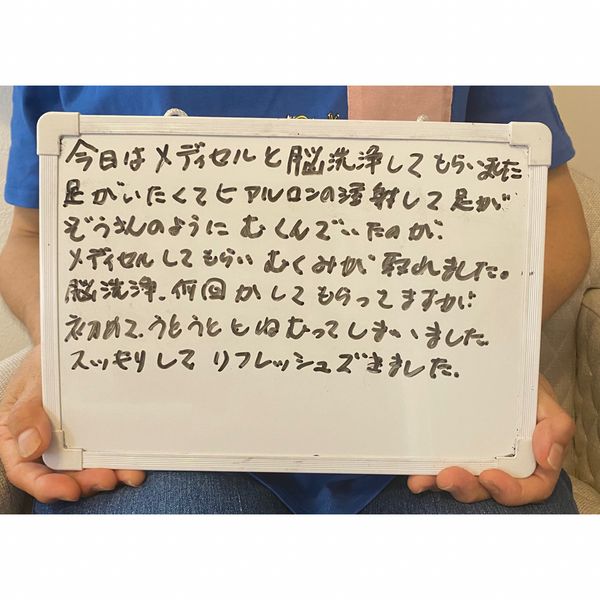 今日はメディセルと脳洗浄してもらいました
足がいたくてヒアルロンの注射して足が
ぞうさんのように むくんでいたのが、
メディセルしてもらい むくみが 取れました。
脳洗浄、何回かしてもらってますが
初めて、うとうととねむってしまいました
スッキリして リフレッシュできました。